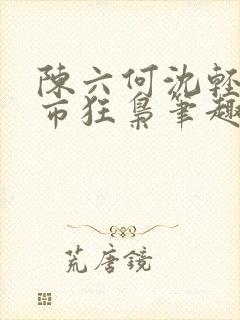 陳六何沈輕
市狂梟筆趣
荒唐鏡